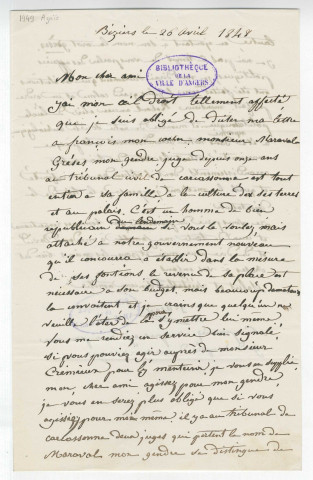 1848 Avril
Béziers le 20 avril 1848
BIBLIOTHÈQUE
DE LA
VILLE D'ANGERS
Mon cher ami
j'ai mon œil droit tellement affecté
que je suis obligé de dicter ma lettre
a françois mon cocher. monsieur Maraval
Grèzes mon gendre juge depuis onze ans
au tribunal civil de carcassonne est tout
entier a sa famille a la culture de ses terres
et au palais. C'est un homme de bien
républicain du lendemain si vous le voulez mais
attaché a notre gouvernement nouveau
qu'il concourra a établir dans la mésure
de ses fontions le revenu de sa place est
nécessaire a son budget mais beaucoup
la convoitent et je crains que quelqu'un ne
veuille l'oter de là pour s'y mettre lui meme
vous me rendriez un service bien signalé
si vous pouviez agir auprès de monsieur
Crémieux pour l'y maintenir je vous en supplie
mon cher ami agissez pour mon gendre
je vous en serez plus obligé que si vous
agissiez pour moi même. il y a au tribunal de
carcassonne deux juges qui portent le nom de
Maraval mon gendre se distingue de